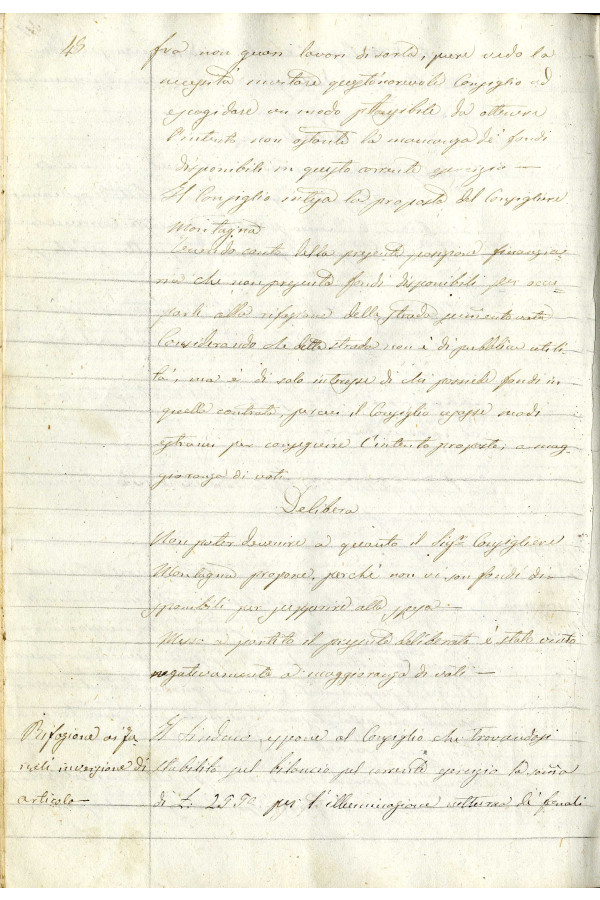 48
fra non guari lavori di sorta, pure vedo la
necessità invitare quest'onorevole Consiglio ad
escogidare un modo plausibile da ottenere
l'intento non ostante la mancanza de' fondi
disponibili in questo corrente esercizio —
Il Consiglio intesa la proposta del Consigliere
Montagna
Tenendo conto della presente posizione finanzia-
ria che non presenta fondi disponibili per
alla rifazione della strada
Considerando che detta strada non è di pubblica utili-
tà, ma è di solo interesse di chi possiede fondi in
quella contrada, il Consiglio modi
estranei per conseguire l'intento proposto, a mag-
gioranza di voti
Delibera
Non poter devenire a quanto il Sigr Consigliere
Montagna propone, perché non vi son fondi di-
sponibili per sopperire alla spesa —
Messo a partito il presente deliberato è stato vinto
negativamente a maggioranza di voti —
Rifazione ai fa-
nali inversione di
articolo —
Il Sindaco espone al Consiglio che trovandosi
stabilito pel bilancio pel corrente esercizio la somma
di £: per l'illuminazione notturna de' fanali